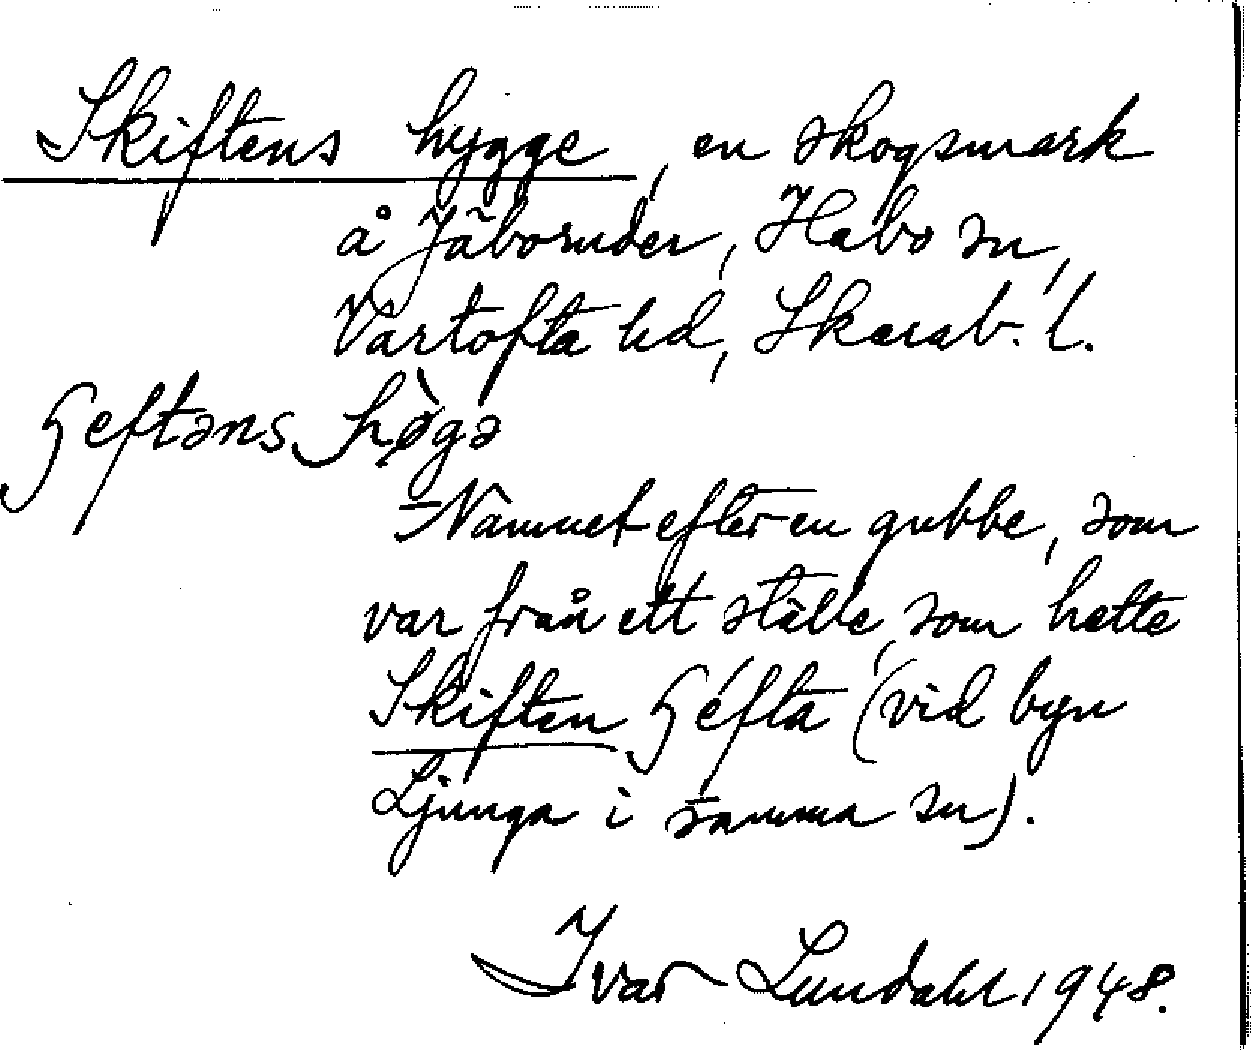 Skiftens hygge, en skogsmark
å Jäboruder, Habo sn,
Vartofta hd, Skarab. l.
ʃeftəns hø̀gə
Namnet efter en gubbe, som
var från ett ställe, som hette
Skiften ʃéfta (vid byn
Ljunga i samma sn).
Ivar Lundahl 1948.